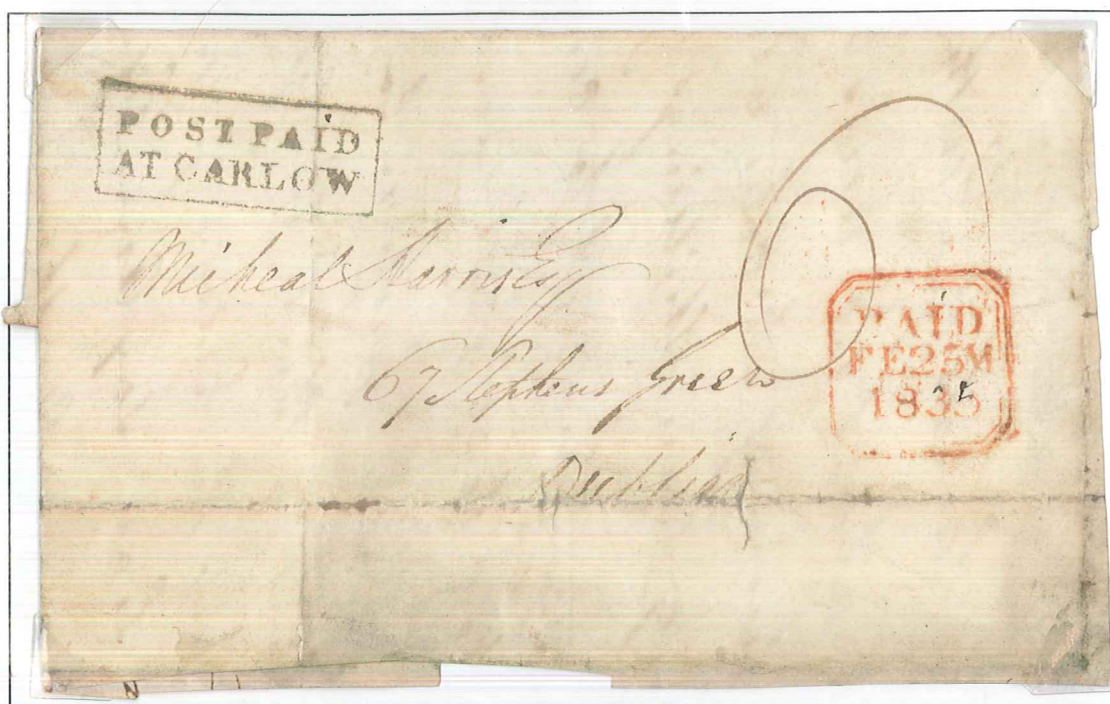 POST PAID
AT CARLOW
Micheal Harris Esq
67 Stephens Green
Dublin
PAID
FE25M
1835
N